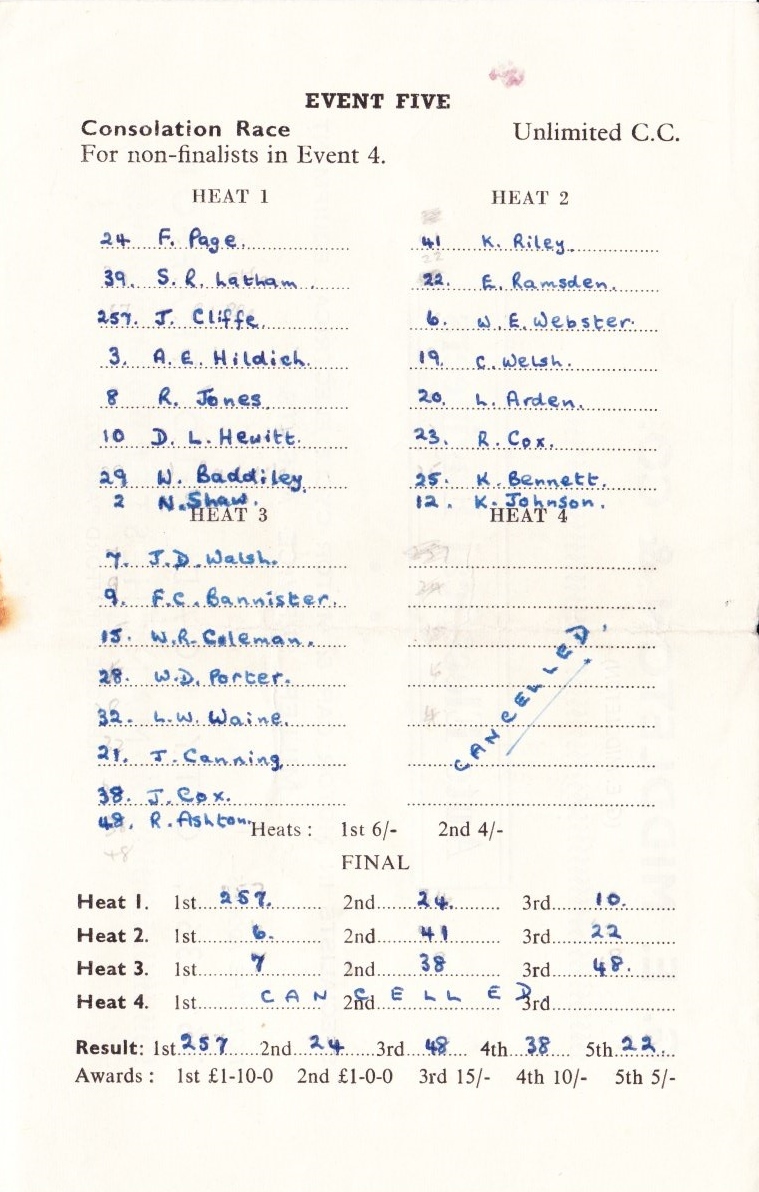 EVENT FIVE
Consolation Race Unlimited C.C.
For non-finalists in Event 4.
HEAT 1
24 F. Page.
39. S. R. Latham.
257. J. Cliffe.
3. A. E. Hildich.
8 R. Jones.
10 D. L. Hewitt.
29 W. Baddiley.
2 N. Shaw.
HEAT 2
41 K. Riley.
22. E. Ramsden.
6. W. E. Webster.
19. C. Welsh.
20. L. Arden.
23. R. Cox.
25. K. Bennett.
12. K. Johnson.
HEAT 3
7. J. D. Walsh.
9. F. C. Bannister.
15. W. R. Coleman.
28. W. D. Porter.
32. L. W. Waine.
21. J. Canning.
38. J. Cox.
48. R. Ashton.
HEAT 4
CANCELLED.
Heats : 1st 6/- 2nd 4/-
FINAL
Heat 1. 1st 257. 2nd 24. 3rd 10.
Heat 2. 1st 6. 2nd 41 3rd 22
Heat 3. 1st 7 2nd 38 3rd 48.
Heat 4. 1st 2nd 3rd CANCELLED
Result: 1st 257 2nd 24 3rd 48 4th 38 5th 22
Awards : 1st £1-10-0 2nd £1-0-0 3rd 15/- 4th 10/- 5th 5/-